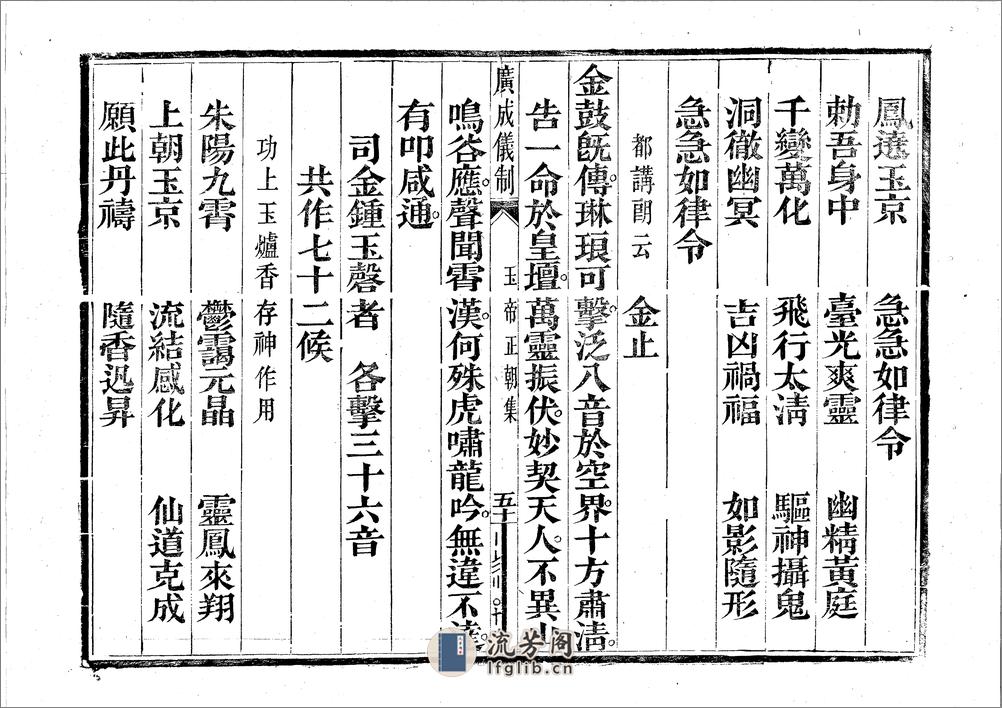 鳳遶玉京　急急如律令
勅吾身中　臺光爽靈　幽精黃庭
千變萬化　飛行太清　驅神攝鬼
洞徹幽冥　吉凶禍福　如影隨形
急急如律令
都講朗云　金止
金鼓既傳琳琅可擊。泛八音於空界。十方肅清。
告一命於皇壇。萬靈振伏。妙契天人。不異山
廣成儀制　玉帝正朝集　五十
鳴谷應。聲聞霄漢。何殊虎嘯龍吟。無違不達。
有叩咸通。
司金鍾玉磬者　各擊三十六音
共作七十二候
功上玉爐香　存神作用
朱陽九霄　鬱靄元晶　靈鳳來翔
上朝玉京　流結感化　仙道克成
願此丹禱　隨香迅昇
流芳阁
lfglib.cn